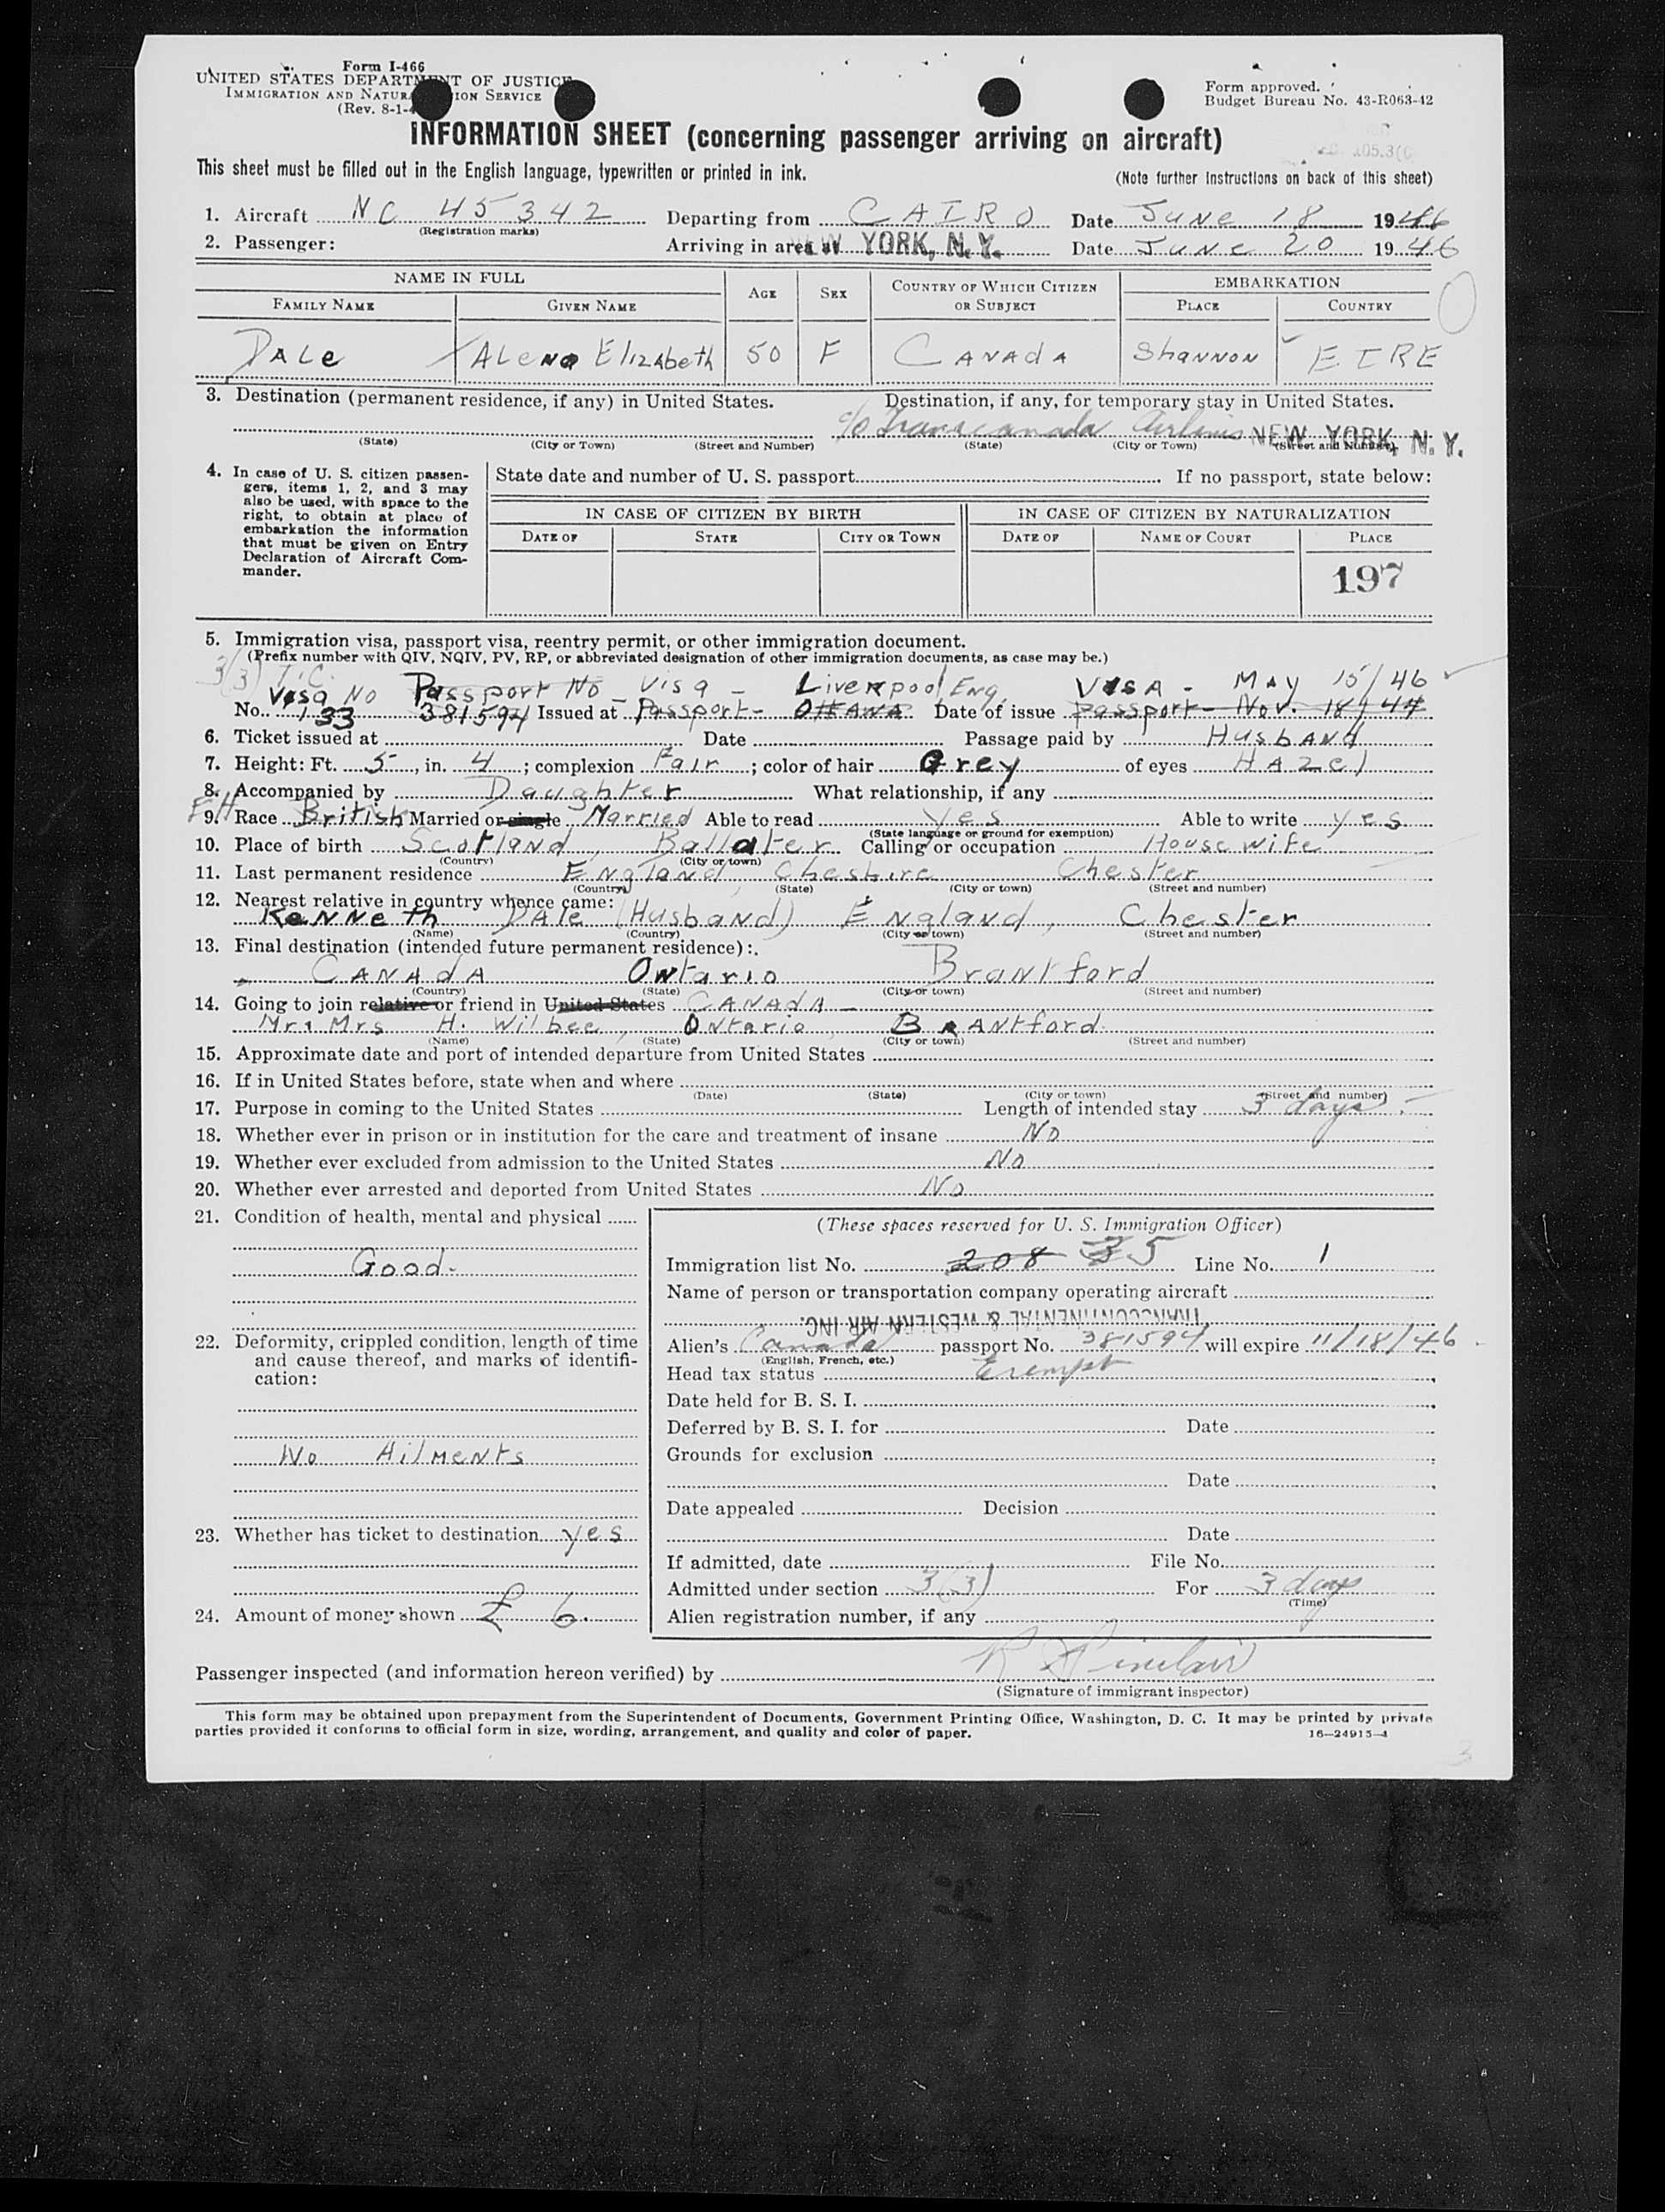 Form I-466
UNITED STATES DEPARTMENT OF JUSTICE
IMMIGRATION AND NATUR ION SERVICE
(Rev. 8-1-4
Form approved.
Budget Bureau No. 43-R063-42
INFORMATION SHEET (concerning passenger arriving on aircraft)
105.3(
This sheet must be filled out in the English language, typewritten or printed in ink.
(Note further instructions on back of this sheet)
1. Aircraft NC 45342 Departing from CAIRO Date June 18 1946
(Registration marks)
2. Passenger: Arriving in area at NEW YORK, N.Y. Date June 20 1946
NAME IN FULL AGE SEX COUNTRY OF WHICH CITIZEN OR SUBJECT EMBARKATION
FAMILY NAME GIVEN NAME PLACE COUNTRY
DALe ALeNa Elizabeth 50 F CANAdA Shannon EIRE
3. Destination (permanent residence, if any) in United States. Destination, if any, for temporary stay in United States.
c/o Transcanada Airlines NEW YORK, N.Y.
(State) (City or Town) (Street and Number) (State) (City or Town) (Street and Number)
4. In case of U. S. citizen passen-
gers, items 1, 2, and 3 may
also be used, with space to the
right, to obtain at place of
embarkation the information
that must be given on Entry
Declaration of Aircraft Com-
mander.
State date and number of U. S. passport If no passport, state below:
IN CASE OF CITIZEN BY BIRTH IN CASE OF CITIZEN BY NATURALIZATION
DATE OF STATE CITY OR TOWN DATE OF NAME OF COURT PLACE
197
5. Immigration visa, passport visa, reentry permit, or other immigration document.
(Prefix number with QIV, NQIV, PV, RP, or abbreviated designation of other immigration documents, as case may be.)
3(3) T.C.
Visa No Passport No Visa - Liverpool Eng. VISA - MAY 15/46
No. 133 381594 Issued at Passport - OttAWA Date of issue Passport - Nov. 18/44
6. Ticket issued at Date Passage paid by HusbANd
7. Height: Ft. 5, in. 4; complexion Fair; color of hair Grey of eyes HAZel
8. Accompanied by Daughter What relationship, if any
9. Race British Married or single Married Able to read Yes Able to write yes
(State language or ground for exemption)
10. Place of birth Scotland, Ballater Calling or occupation Housewife
(Country) (City or town)
11. Last permanent residence ENgland, Cheshire Chester
(Country) (State) (City or town) (Street and number)
12. Nearest relative in country whence came:
KeNNeth DALe (Husband) ENgland, Chester
(Name) (Country) (City or town) (Street and number)
13. Final destination (intended future permanent residence):
CANAdA Ontario Brantford
(Country) (State) (City or town) (Street and number)
14. Going to join relative or friend in United States CANAdA -
Mr & Mrs H. Wilbee, Ontario, BrANtford
(Name) (State) (City or town) (Street and number)
15. Approximate date and port of intended departure from United States
16. If in United States before, state when and where
(Date) (State) (City or town) (Street and number)
17. Purpose in coming to the United States Length of intended stay 3 days
18. Whether ever in prison or in institution for the care and treatment of insane No
19. Whether ever excluded from admission to the United States No
20. Whether ever arrested and deported from United States No
21. Condition of health, mental and physical
Good.
22. Deformity, crippled condition, length of time
and cause thereof, and marks of identifi-
cation:
No Ailments
23. Whether has ticket to destination yes
24. Amount of money shown £ 6.
(These spaces reserved for U. S. Immigration Officer)
Immigration list No. 208 35 Line No. 1
Name of person or transportation company operating aircraft
TRANSCONTINENTAL & WESTERN AIR INC.
Alien's Canada passport No. 381594 will expire 11/18/46
(English, French, etc.)
Head tax status Exempt
Date held for B. S. I.
Deferred by B. S. I. for Date
Grounds for exclusion
Date
Date appealed Decision
Date
If admitted, date File No.
Admitted under section 3(3) For 3 days
(Time)
Alien registration number, if any
Passenger inspected (and information hereon verified) by R Sinclair
(Signature of immigrant inspector)
This form may be obtained upon prepayment from the Superintendent of Documents, Government Printing Office, Washington, D. C. It may be printed by private
parties provided it conforms to official form in size, wording, arrangement, and quality and color of paper.
16—24915-4
3